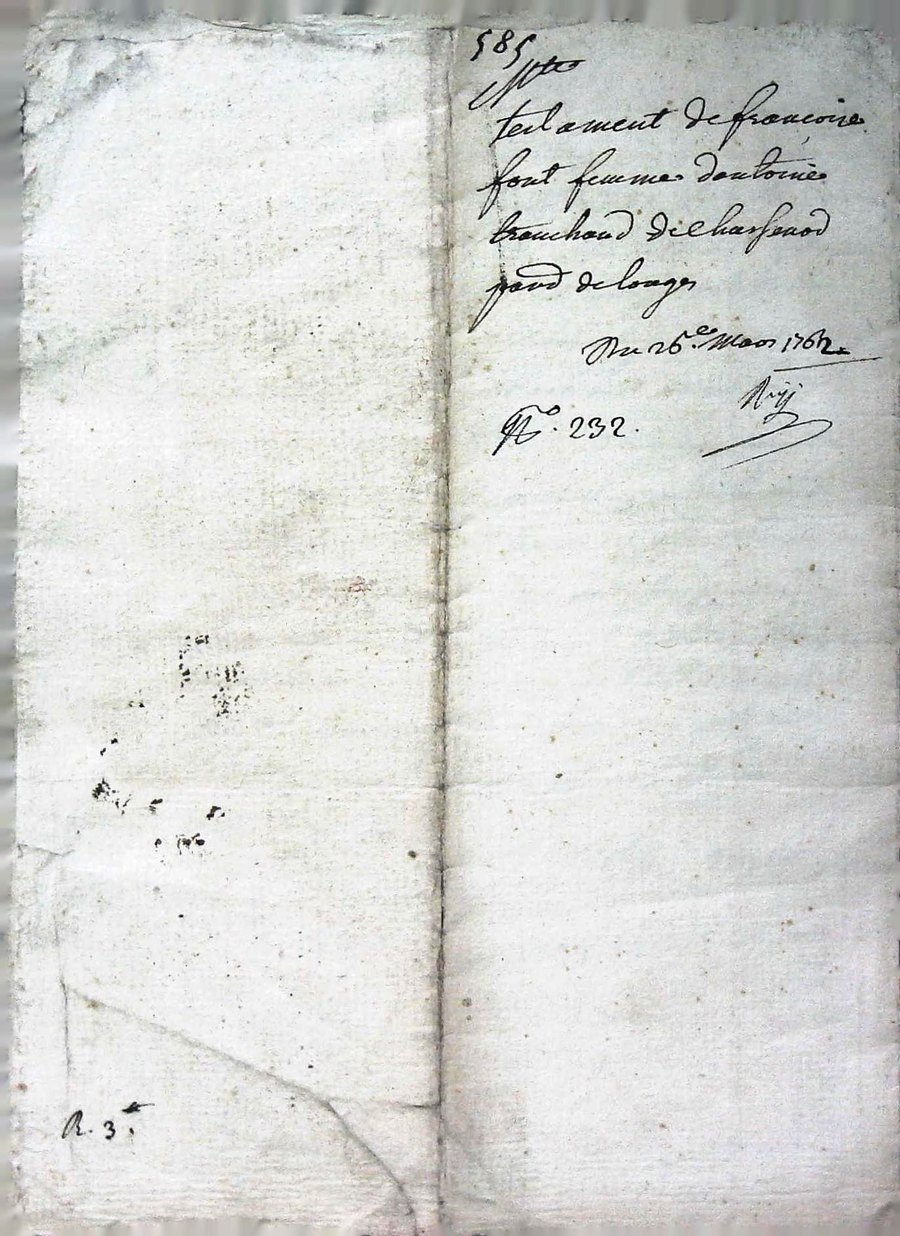 585
testament de francoise
font femme dantoine
tranchand de Chassenod
parr de longes
Du 26.e Mars 1762.
No. 232.
R. 3.tt